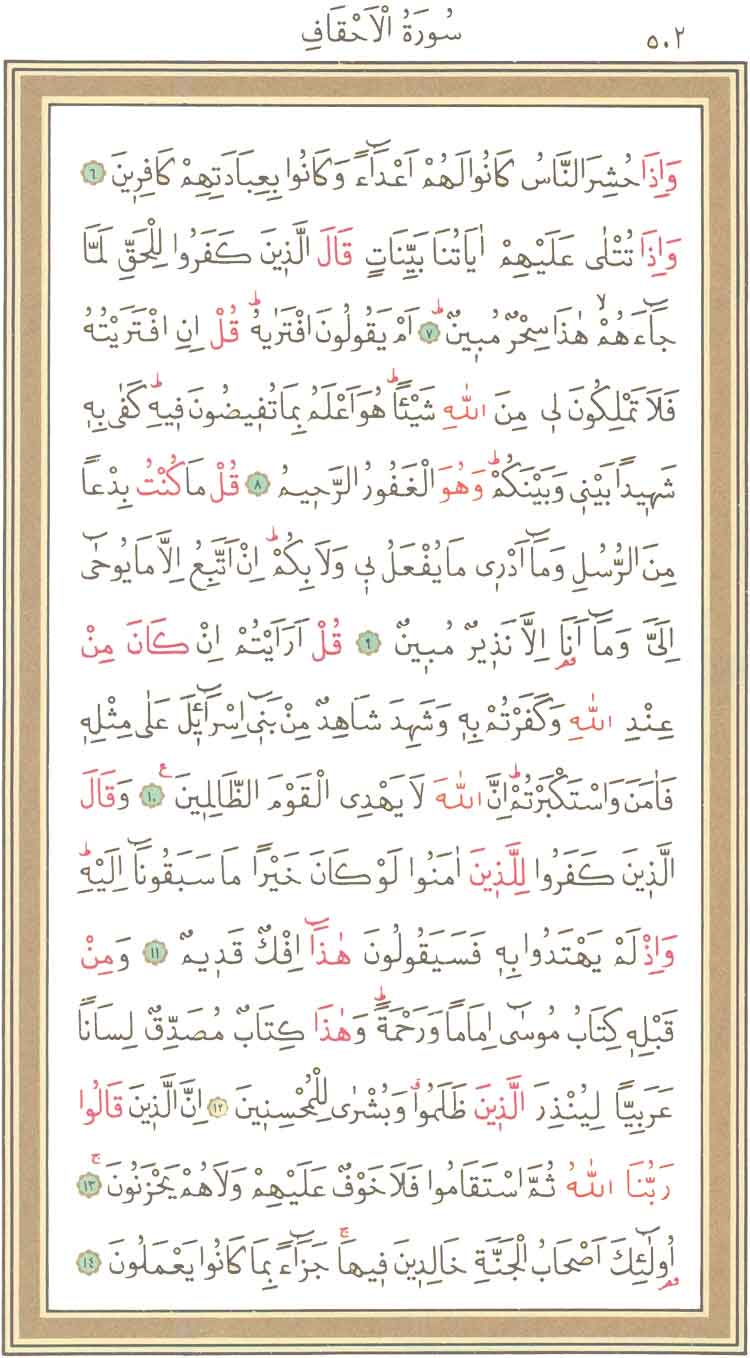 ٥٠٢ سُورَةُ الْاَحْقَافِ
وَاِذَا حُشِرَ النَّاسُ كَانُوا لَهُمْ اَعْدَٓاءً وَكَانُوا بِعِبَادَتِهِمْ كَافِر۪ينَ ٦
وَاِذَا تُتْلٰى عَلَيْهِمْ اٰيَاتُنَا بَيِّنَاتٍ قَالَ الَّذ۪ينَ كَفَرُوا لِلْحَقِّ لَمَّا
جَٓاءَهُمْۙ هٰذَا سِحْرٌ مُب۪ينٌۜ ٧ اَمْ يَقُولُونَ افْتَرٰيهُۜ قُلْ اِنِ افْتَرَيْتُهُ
فَلَا تَمْلِكُونَ ل۪ي مِنَ اللّٰهِ شَيْـٔاًۜ هُوَ اَعْلَمُ بِمَا تُف۪يضُونَ ف۪يهِۜ كَفٰى بِه۪
شَه۪يداً بَيْن۪ي وَبَيْنَكُمْۜ وَهُوَ الْغَفُورُ الرَّح۪يمُ ٨ قُلْ مَا كُنْتُ بِدْعاً
مِنَ الرُّسُلِ وَمَٓا اَدْر۪ي مَا يُفْعَلُ ب۪ي وَلَا بِكُمْۜ اِنْ اَتَّبِعُ اِلَّا مَا يُوحٰٓى
اِلَيَّ وَمَٓا اَنَا۬ اِلَّا نَذ۪يرٌ مُب۪ينٌ ٩ قُلْ اَرَاَيْتُمْ اِنْ كَانَ مِنْ
عِنْدِ اللّٰهِ وَكَفَرْتُمْ بِه۪ وَشَهِدَ شَاهِدٌ مِنْ بَن۪ٓي اِسْرَٓائ۪لَ عَلٰى مِثْلِه۪
فَاٰمَنَ وَاسْتَكْبَرْتُمْۜ اِنَّ اللّٰهَ لَا يَهْدِي الْقَوْمَ الظَّالِم۪ينَ۟ ١٠ وَقَالَ
الَّذ۪ينَ كَفَرُوا لِلَّذ۪ينَ اٰمَنُوا لَوْ كَانَ خَيْراً مَا سَبَقُونَٓا اِلَيْهِۜ
وَاِذْ لَمْ يَهْتَدُوا بِه۪ فَسَيَقُولُونَ هٰذَٓا اِفْكٌ قَد۪يمٌ ١١ وَمِنْ
قَبْلِه۪ كِتَابُ مُوسٰٓى اِمَاماً وَرَحْمَةًۜ وَهٰذَا كِتَابٌ مُصَدِّقٌ لِسَاناً
عَرَبِياًّ لِيُنْذِرَ الَّذ۪ينَ ظَلَمُواۗ وَبُشْرٰى لِلْمُحْسِن۪ينَ ١٢ اِنَّ الَّذ۪ينَ قَالُوا
رَبُّنَا اللّٰهُ ثُمَّ اسْتَقَامُوا فَلَا خَوْفٌ عَلَيْهِمْ وَلَا هُمْ يَحْزَنُونَۚ ١٣
اُو۬لٰٓئِكَ اَصْحَابُ الْجَنَّةِ خَالِد۪ينَ ف۪يهَاۚ جَزَٓاءً بِمَا كَانُوا يَعْمَلُونَ ١٤